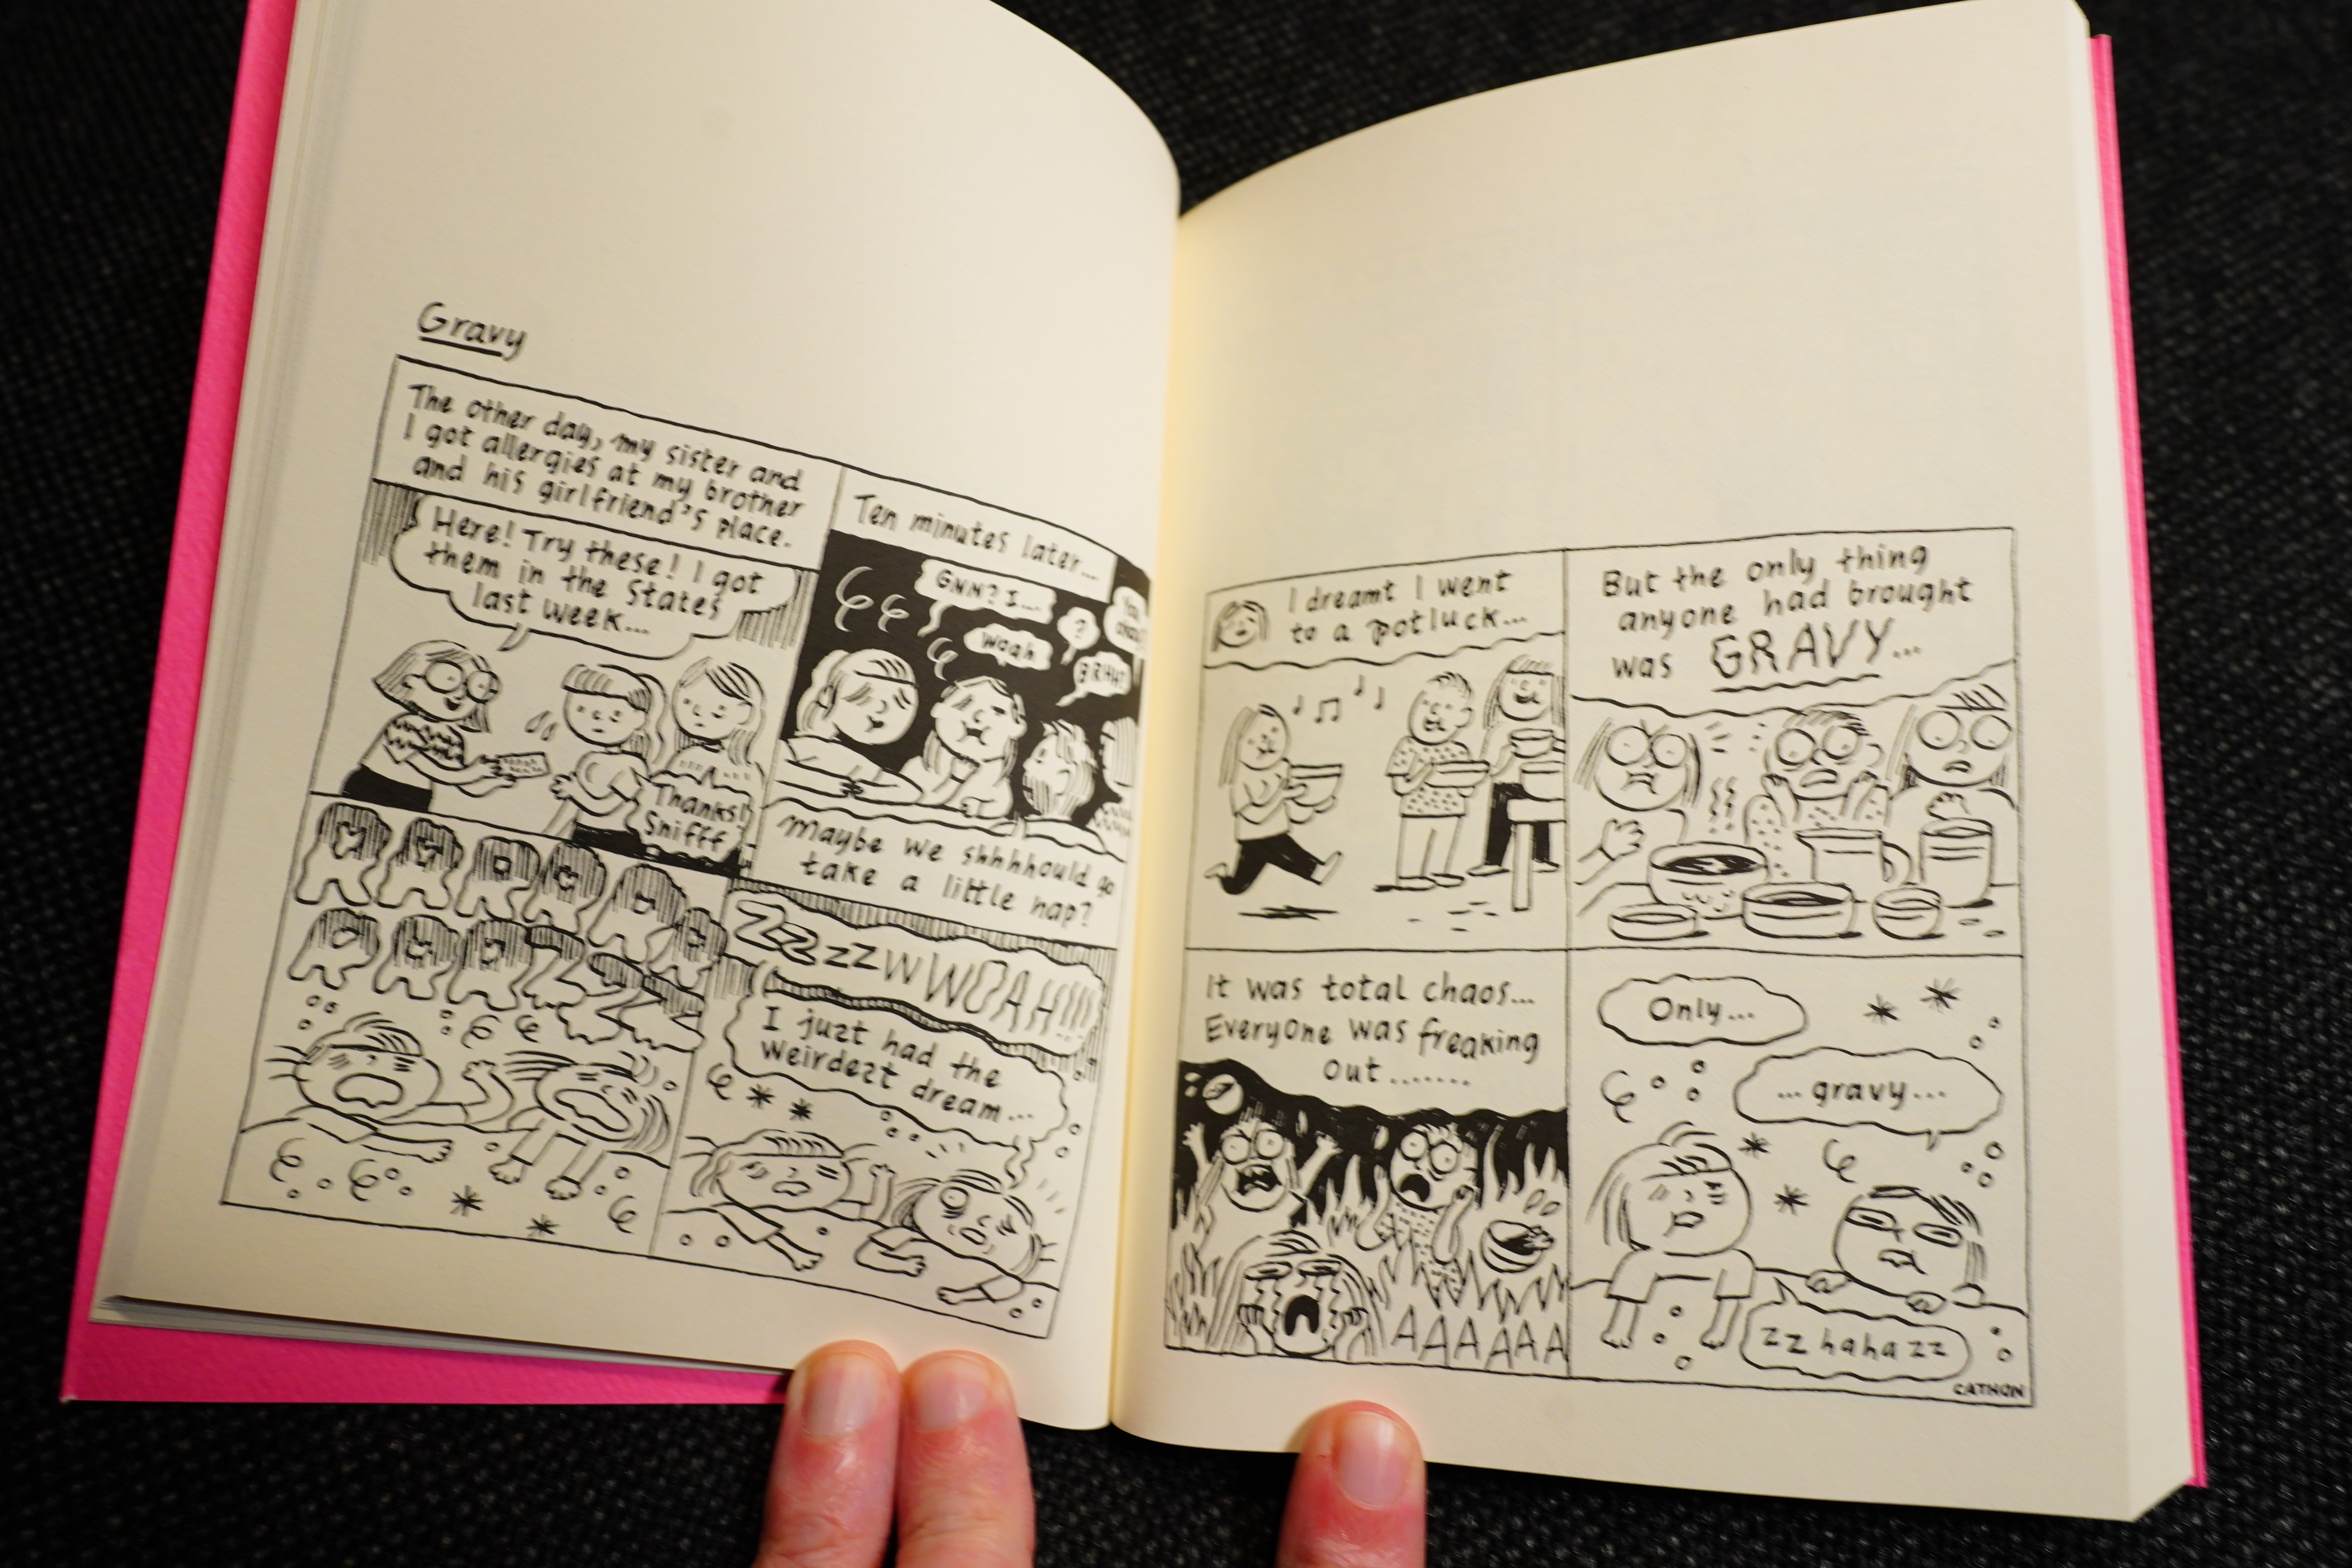 Gravy
The other day, my sister and
I got allergies at my brother
and his girlfriend's place.
Here! Try these! I got
them in the States
last week...
Thanks!
Snifff
Ten minutes later...
GNN? I...
Woah
?
maybe we shhhhould go
take a little nap?
ZZZzzZWWWOAH!!!
I juzt had the
weirdezt dream...
I dreamt I went
to a potluck...
But the only thing
anyone had brought
was GRAVY...
It was total chaos...
Everyone was freaking
out.......
AAAAAA
Only...
...gravy...
zz haha zz
CATHON